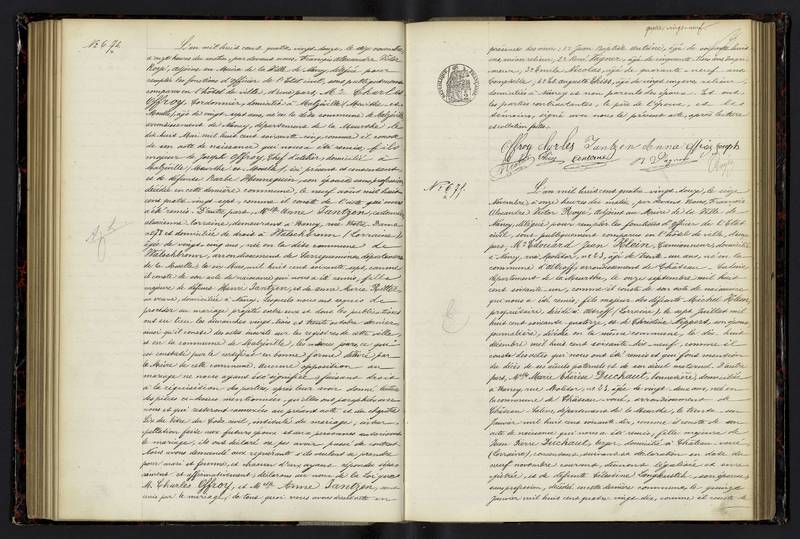 quatre vingt neuf
N° 692.
L'an mil huit cent quatre vingt douze, le dix novembre
à onze heures du matin par devant nous François Alexandre Victor
Roye, adjoint au Maire de la Ville de Nancy, délégué pour
remplir les fonctions d'officier de l'Etat civil, sont publiquement
comparus en l'hôtel de ville, d'une part, M. Charles
Offroy, Cordonnier, domicilié à Malzéville (Meurthe et
Moselle), âgé de vingt sept ans, né en la dite commune de Malzéville
arrondissement de Nancy, département de la Meurthe, le
dix huit Mai mil huit cent soixante cinq, comme il conste
de son acte de naissance qui nous a été remis, fils
majeur de Joseph Offroy, Chef d'atelier, domicilié à
Malzéville (Meurthe et Moselle), ici présent et consentant,
et de défunte Barbe Hennequin, son épouse, sans profession,
décédée en cette dernière commune, le neuf août mil huit
cent quatre vingt sept, comme il conste de l'acte qui nous
a été remis. D'autre part, Melle Anne Jantzen,
alsacienne lorraine, demeurant à Nancy, rue Notre Dame
et domiciliée de droit à Walschbronn (Lorraine),
âgée de vingt cinq ans, née en la dite commune de
Walschbronn, arrondissement de Sarreguemines, département
de la Moselle, le six Mai mil huit cent soixante sept, comme
il conste de son acte de naissance qui nous a été remis, fille
majeure de défunt Henri Jantzen, et de Anne Marie
sa veuve, domiciliée à Nancy. Lesquels nous ont requis de
procéder au mariage projeté entre eux et dont les publications
ont eu lieu les dimanches vingt trois et trente octobre dernier
ainsi qu'il conste des actes inscrits sur les registres de cette ville
et en la commune de Malzéville, les mêmes jours, ce qui
est constaté par le certificat en bonne forme délivré par
le Maire de cette commune. Aucune opposition au
mariage ne nous ayant été signifiée, faisant droit
à la réquisition des parties, après leur avoir donné lecture
des pièces ci-dessus mentionnées, qu'elles ont paraphées avec
nous et qui resteront annexées au présent acte et du chapitre
six du titre du Code civil, intitulé du mariage, sur inter
pellation faite aux futurs époux et aux personnes autorisant
le mariage, ils ont déclaré ne pas avoir passé de contrat.
Nous avons demandé aux requérants s'ils veulent se prendre
pour mari et femme, et chacun d'eux ayant répondu sépa
rément et affirmativement, déclarons au nom de la loi que
M. Charles Offroy, et Melle Anne Jantzen, sont
unis par le mariage, de tout quoi nous avons dressé acte en
présence des sieurs: 1° Jean Baptiste Antoine, âgé de soixante huit
ans, ancien relieur, 2° René Wagner, âgé de cinquante trois ans, impri
meur, 3° Emile Nicolas, âgé de quarante neuf ans,
comptable, 4° et Auguste Thiry, âgé de vingt cinq ans, relieur,
domiciliés à Nancy et non parents des époux. Et ont
les parties contractantes, le père de l'époux, et les
témoins, signé avec nous le présent acte, après lecture
et collation faites.
Offroy Charles Jantzen Anna Offroy Joseph
Nicolas Thiry Antoine Wagner Roye
N° 693.
L'an mil huit cent quatre vingt douze, le dix
Novembre à onze heures du matin, par devant Nous, François
Alexandre Victor Roye, adjoint au Maire de la Ville de
Nancy, délégué pour remplir les fonctions d'officier de l'Etat
civil, sont publiquement comparus en l'hôtel de ville, d'une
part, M. Edouard Jean Klein, Camionneur, domicilié
à Nancy, rue Molitor, n° 23, âgé de trente un ans, né en la
commune d'Altroff, arrondissement de Château-Salins,
département de la Meurthe, le onze septembre mil huit
cent soixante un, comme il conste de son acte de naissance
qui nous a été remis, fils majeur des défunts Michel Klein,
propriétaire, décédé à Altroff (Lorraine), le sept Juillet mil
huit cent soixante quatorze, et Christine Nippert, son épouse,
journalière, décédée en la même commune, le dix huit
décembre mil huit cent soixante dix neuf, comme il
conste des actes qui nous ont été remis et qui font mention
du décès de ses aïeuls paternel et de son aïeul maternel. D'autre
part, Melle Marie Thérèse Duchaut, Couturière, domiciliée
à Nancy, rue Molitor, n° 23, âgée de vingt deux ans, née en
la commune de Château voué, arrondissement de
Château-Salins, département de la Meurthe, le trente un
Janvier mil huit cent soixante dix, comme il conste de son
acte de naissance qui nous a été remis, fille majeure de
Jean Pierre Duchaut, berger, domicilié à Château voué
(Lorraine), consentant, suivant sa déclaration en date du
neuf novembre courant, dûment légalisée et enre
gistrée, et de défunte Célestine, son épouse,
sans profession, décédée en cette dernière commune, le quinze
janvier mil huit cent quatre vingt dix, comme il conste de